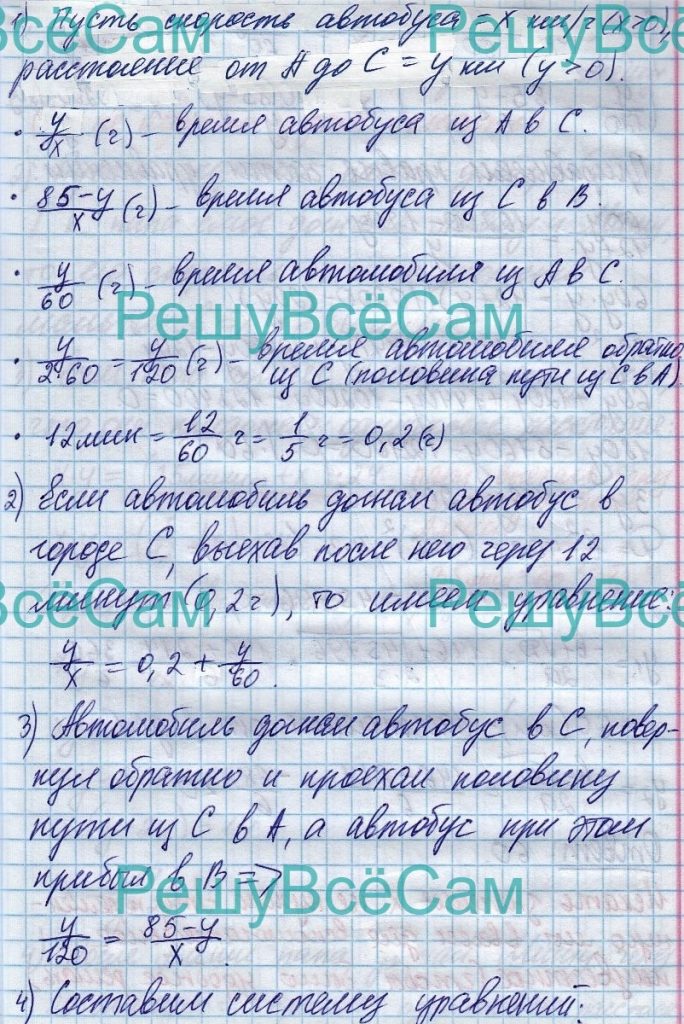 1) Пусть скорость автобуса = x км/ч (x>0),
расстояние от A до C = y км (y>0).
• y/x (ч) – время автобуса из A в C.
• 85-y/x (ч) – время автобуса из C в B.
• y/60 (ч) – время автомобиля из A в C.
РешуВсёСам
• y/2·60 = y/120 (ч) – время автомобиля обратно
из C (половина пути из C в A).
• 12 мин = 12/60 ч = 1/5 ч = 0,2 (ч)
2) Если автомобиль догнал автобус в
городе C, выехав после него через 12
минут (0,2 ч), то имеем уравнение:
y/x = 0,2 + y/60.
3) Автомобиль догнал автобус в C, повер-
нул обратно и проехал половину
пути из C в A, а автобус при этом
прибыл в B =>
РешуВсёСам
y/120 = 85-y/x.
4) Составим систему уравнений: